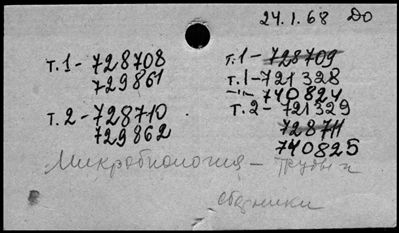 24.1.68 До
т.1 - 728708
729861
т.2 - 728710
729862
т.1 - 728709
т.1 - 721328
-"- 740824
т.2 - 721329
728711
740825
Микробиология - труды и
сборники